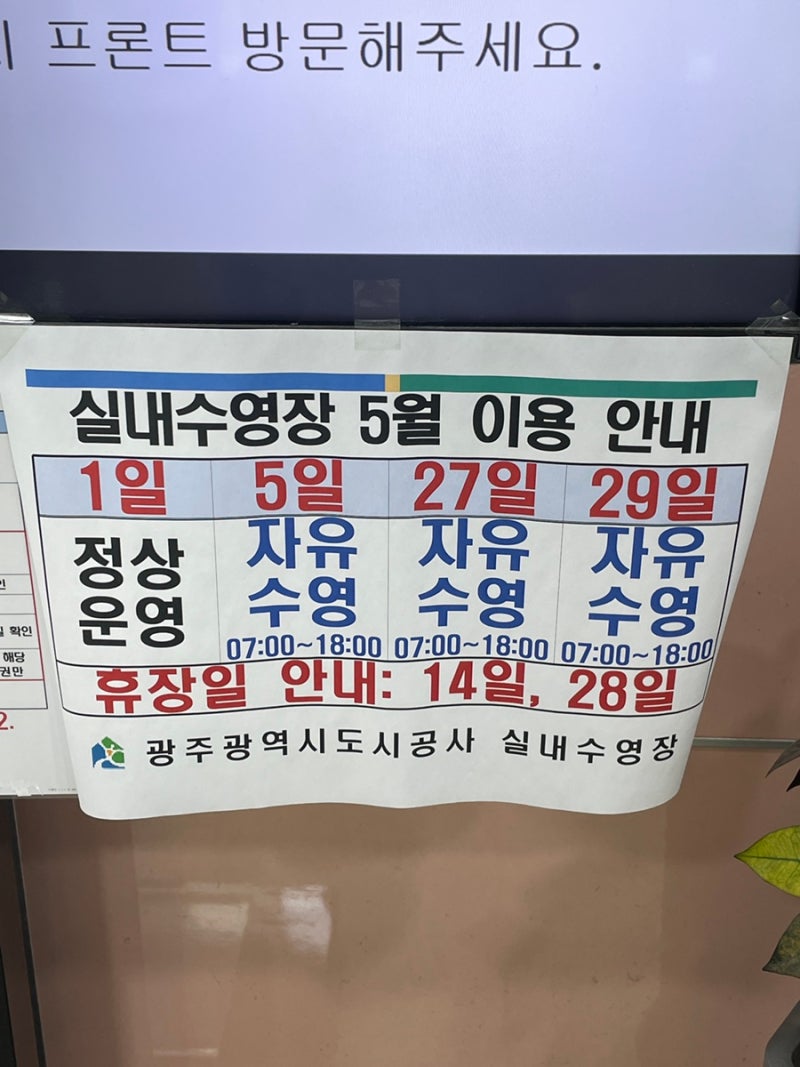 프론트 방문해주세요.
실내수영장 5월 이용 안내
1일 5일 27일 29일
정상 운영
자유 수영 07:00~18:00
자유 수영 07:00~18:00
자유 수영 07:00~18:00
휴장일 안내: 14일, 28일
광주광역시도시공사 실내수영장
확인
해당
권만
2.